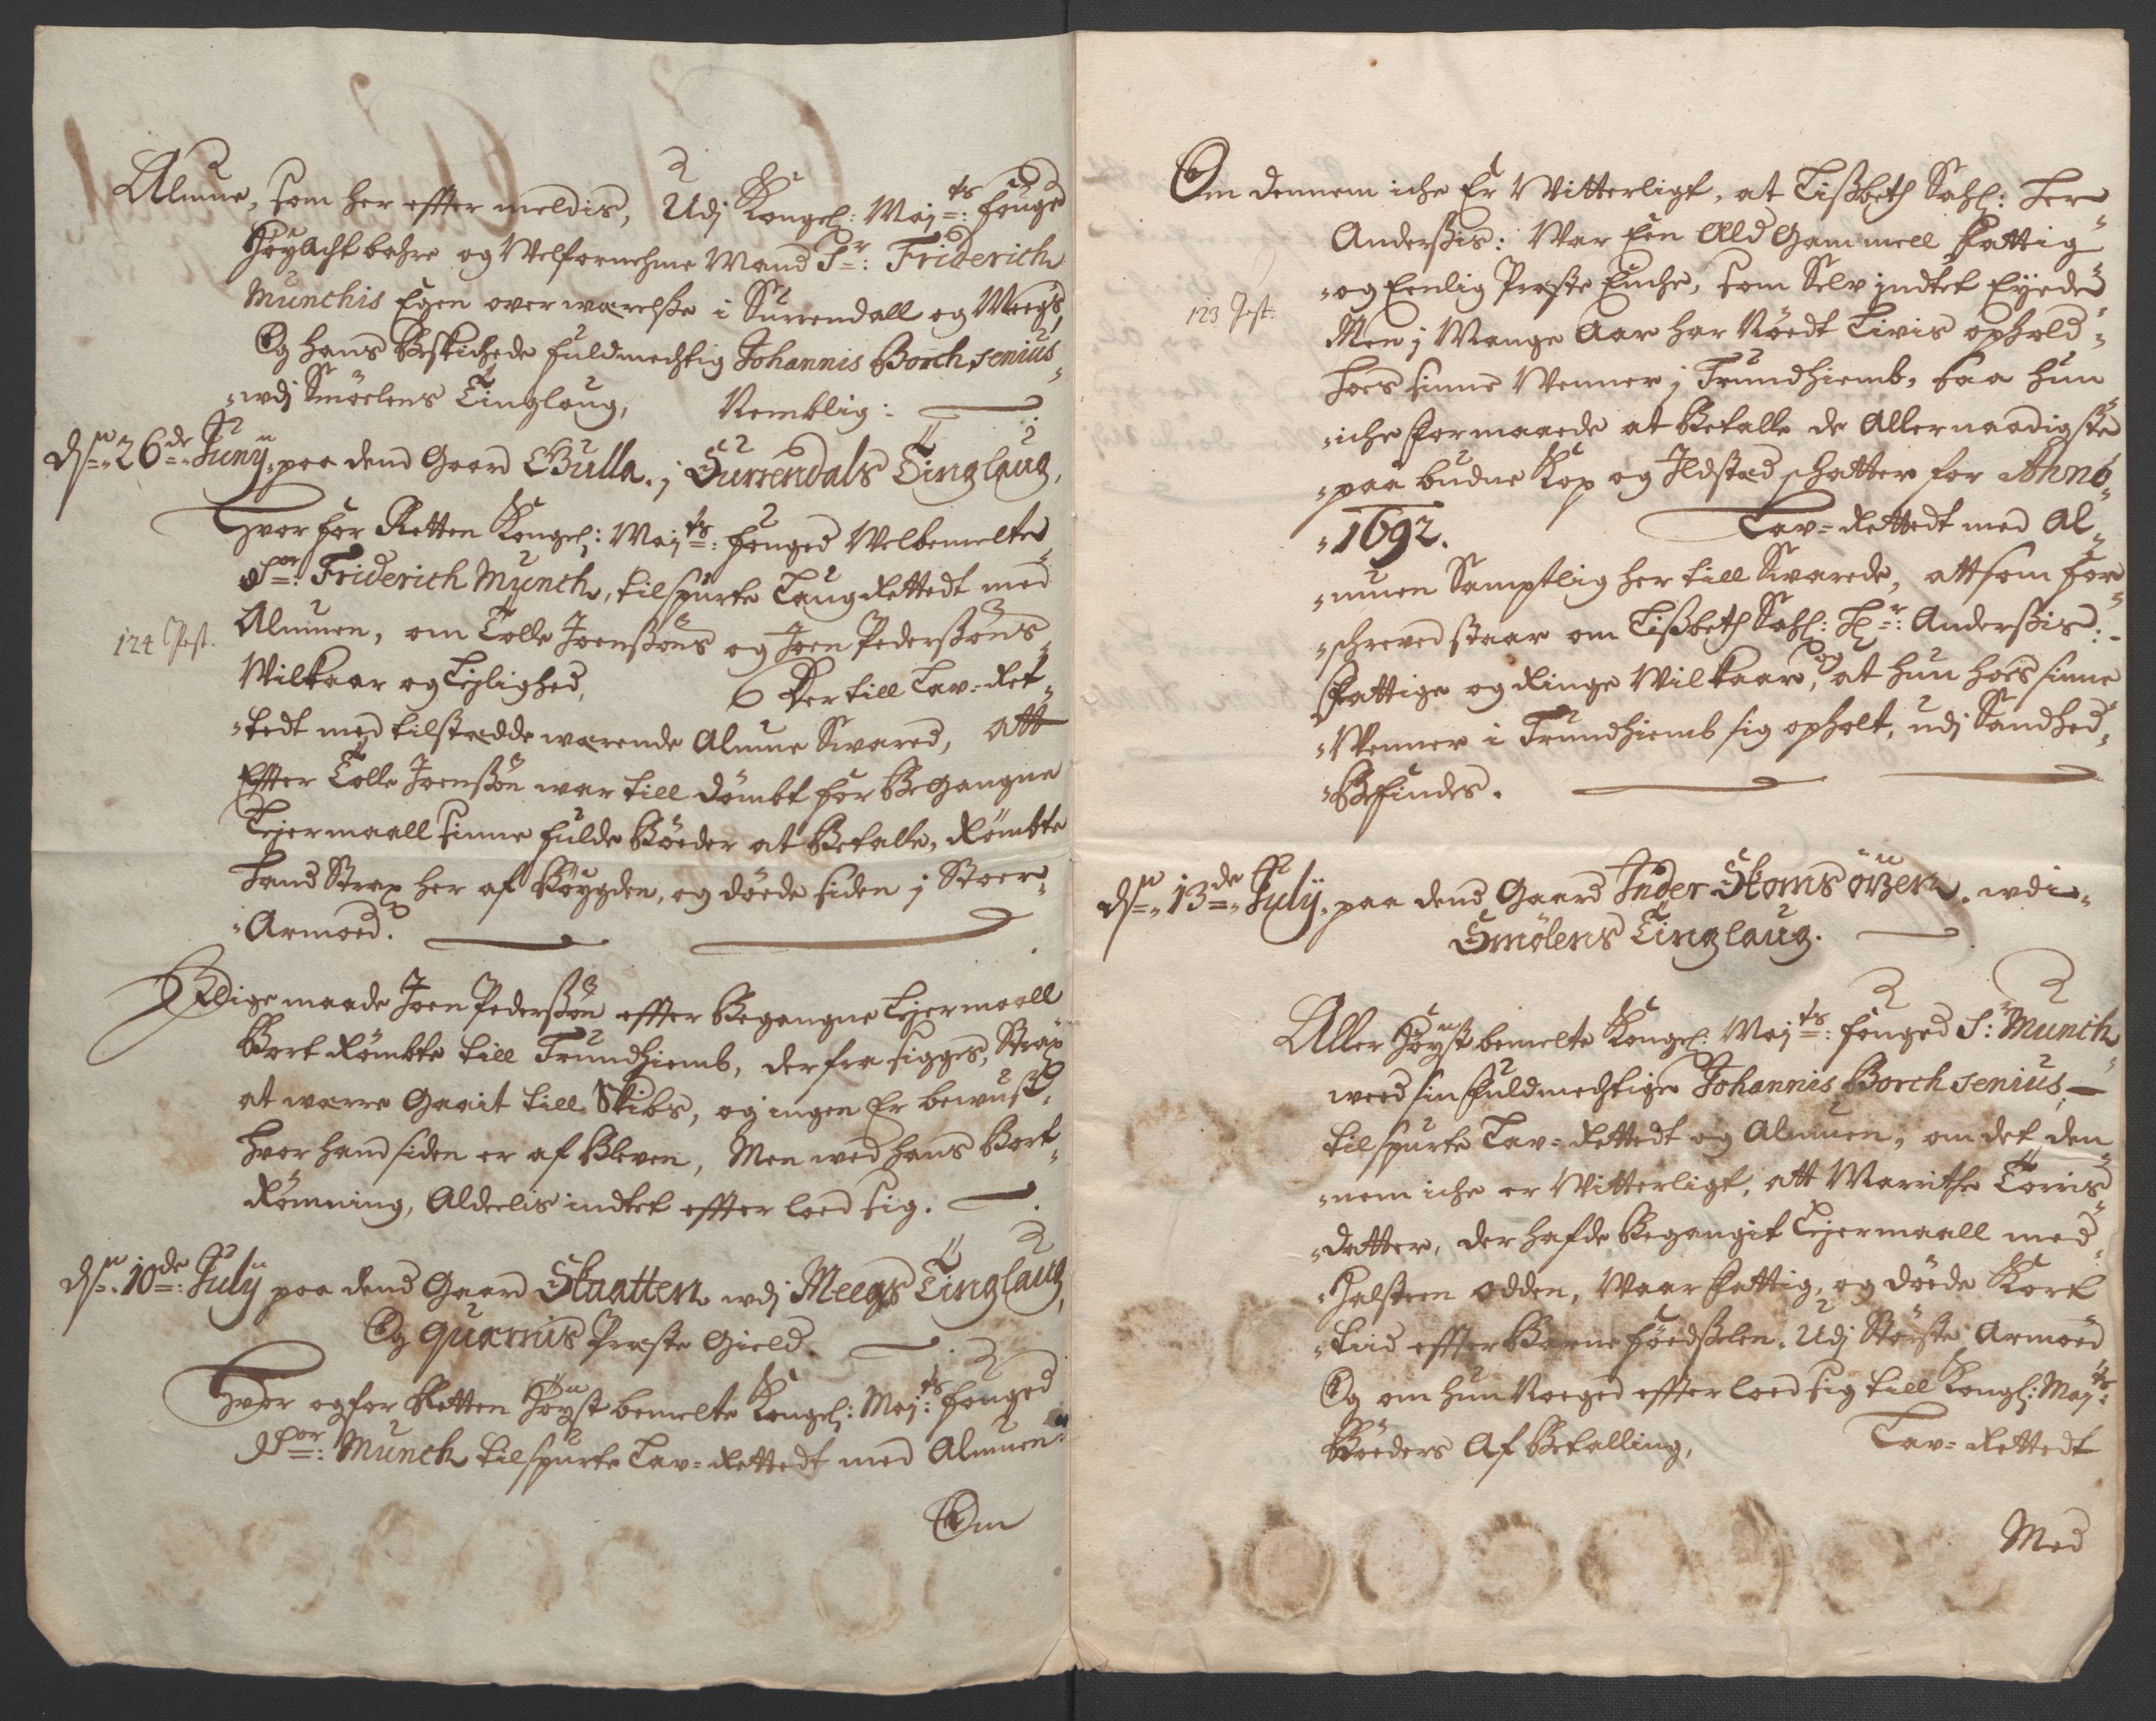 Almue, som her effter meldis, Udj Kongel: Maj:ts fouge
Høyacht bahre og Velfornehme Mand Sr: Friderich
Munchis Egen overwærelsse i Surrendall og Meegs,
Og hans Beskichede fuldmechtig Johannis Borchsenius
wdj Smøelens Tinglaug, Nemblig:
dn 26de Junij, paa dend Gaard Bulla, j Surrendals Tinglaug,
Hvor for Retten Kongel: Maj:ts fouged Velbemelte
Sr: Friderich Munch, tilspurte Laugrettedt med
Almuen, om Tolle Joenssøns og Joen Pederssøns
124 Post.
Vilkaar og Lejlighed, Der till Lav-Ret-
tedt med tilstædde wærende Almue Svared, att
Effter Tolle Joenssøn war till dømbt for Begangne
Lejermaall sinne fulde Bøeder at Betalle, Rømbte
Hand Strax her af Bøygden, og døede siden j Stoer
Armoed.
J Lige maade Joen Pederssøn effter Begangne Lejermaall
Bort Rømbte till Trundhiemb, der fra sigges, Strax
at wærre Gaait till Skibs, og ingen Er bewust,
hvor hand siden er af Bleven, Men wed hans Bort
Rømning, Aldeelis indtet effter loed sig.
dn 10de Julij paa dend Gaard Skaatten wdj Meegs Tinglaug,
Og Quærnis Præste Gield.
Hvor og for Retten Høyst bemelte Kongel: Maj:ts fouged
Sr: Munch tilspurte Lav-Rettedt med Almuen
Om
Om dennem iche Er Vitterligt, at Lissbeth Sahl: Her
Anderssis: War Een Ald Gammell Fattig
og Eenlig Præste Enche, som Selv jndtet Eyede
123 Post.
Men j Mange Aar har Nøedt Livis ophold
hoes sinne Venner j Trundhiemb, saa hun
iche formaaede at Betalle de Allernaadigste
paa budne Kop og Ildsted schatter for Ahno
1692. Lav-Rettedt med Al-
muen Samptlig her till Svarede, att som for
schreved staar om Lissbeth Sahl: Hr: Anderssis:
Fattige og Ringe Vilkaar, og at hun hoes sinne
Venner i Trundhiemb sig opholt, udj Sandhed
Befindes.
dn 13de Julij, paa dend Gaard Inder Skomsøyen, wdi
Smølens Tinglaug.
Aller Høyst bemelte Kongel: Maj:ts fouged Sr: Munch
wed sin Fuldmechtige Johannis Borchsenius,
tilspurte Lav-Rettedt og Almuen, om det den-
nem iche er Vitterligt, att Marrithe Torris
datter, der hafde Begangit Lejermaall med
Halsteen Odden, Waar Fattig, og døede Kort
tiid effter Barne fødsselen, Udj Største Armoed
Og om hun Noeged effter loed sig till Kongl: Maj:ts
Bøeders Af Betalling, Lav-Rettedt
Med